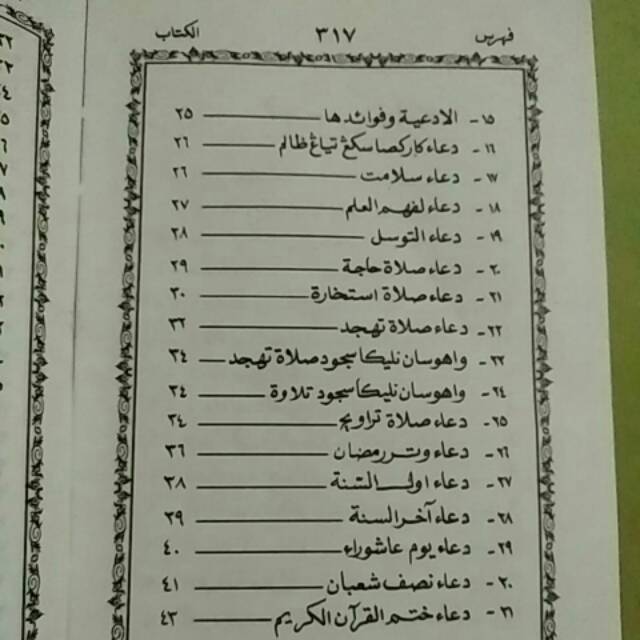 فهرس ٣١٧ الكتاب
١٥- الادعية وفوائدها ٢٥
١٦- دعاء كاركصا سكڠ تياڠ ظالم ٢٦
١٧- دعاء سلامت ٢٦
١٨- دعاء لفهم العلم ٢٧
١٩- دعاء التوسل ٢٨
٢٠- دعاء صلاة حاجة ٢٩
٢١- دعاء صلاة استخارة ٣٠
٢٢- دعاء صلاة تهجد ٣٢
٢٣- واهوسان نليكا سجود صلاة تهجد ٣٤
٢٤- واهوسان نليكا سجود تلاوة ٣٤
٢٥- دعاء صلاة تراويح ٣٤
٢٦- دعاء وتر رمضان ٣٦
٢٧- دعاء اول السنة ٣٨
٢٨- دعاء آخر السنة ٣٩
٢٩- دعاء يوم عاشوراء ٤٠
٣٠- دعاء نصف شعبان ٤١
٣١- دعاء ختم القرآن الكريم ٤٣